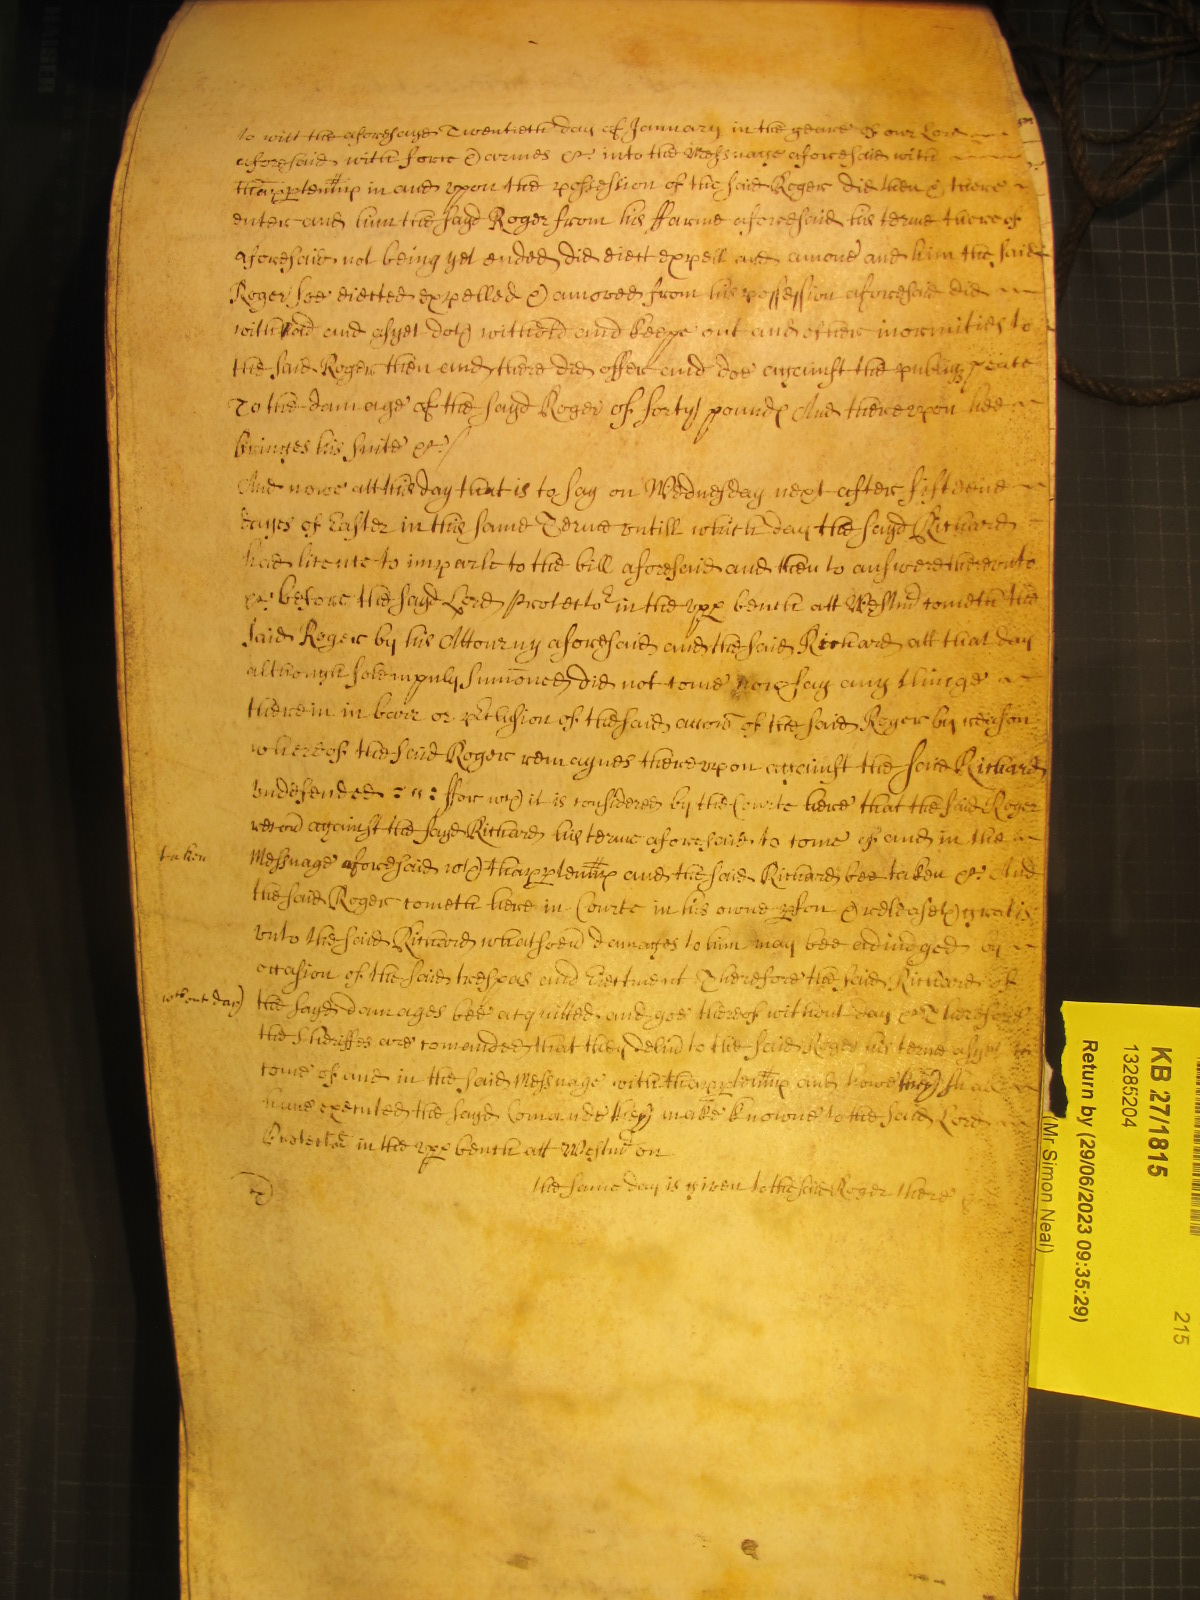 to witt the aforesayd Twentieth day of January in the yeare of our Lord
aforesaid with force & armes &c into the Messuage aforesaid with
thappurtenn̄cp in and vpon the possession of the said Roger did then & there
enter and him the sayd Roger from his ffarme aforesaid his terme thereof
aforesaid not being yet ended did eiect expell and amove and him the said
Roger soe eiected expelled & amoved from his possession aforesaid did
withhold and as yet doth withhold and keepe out and other inormities to
the said Roger then and there did offer and doe against the publiq peace
To the damage of the sayd Roger of forty pound And therevpon hee
bringes his suite &c
And nowe att this day that is to say on Wednesday next after fifteene
dayes of Easter in this same Terme vntill which day the sayd Richard
had licence to imparle to the bill aforesaid and then to answere therevnto
&c before the sayd Lord Protector in the vpp bench att Westm̄ cometh the
said Roger by his Attourny aforesaid and the said Richard att that day
although solempnly sumoned did not come nor say any thinge
therein in barr or p̄clusion of the said accon̄ of the said Roger by reason
whereof the said Roger remaynes therevpon against the said Richard
vndefended ffor wch it is considered by the Courte here that the said Roger
recoū against the sayd Richard his terme aforesaid to come of and in the
taken
Messuage aforesaid wth thappurtenn̄cp and the said Richard bee taken &c And
the said Roger cometh here in Courte in his owne pson & releaseth gratis
vnto the said Richard whatsoeū damages to him may bee adiudged by
occasion of the said trespas and Eiectment Therefore the said Richard of
without day
the sayd damages bee acquitted and goe thereof without day &c Therefore
the Sheriffes are comanded that they deliū to the said Roger his terme as yet to
come of and in the said Messuage with thappurtenn̄cp and howe they shall
haue executed the sayd Comande they make knowne to the said Lord
Protector in the vpp bench att Westm̄ on
the same day is given to the said Roger there
KB 27/1815
13285204
215
Return by (29/06/2023 09:35:29)
(Mr Simon Neal)